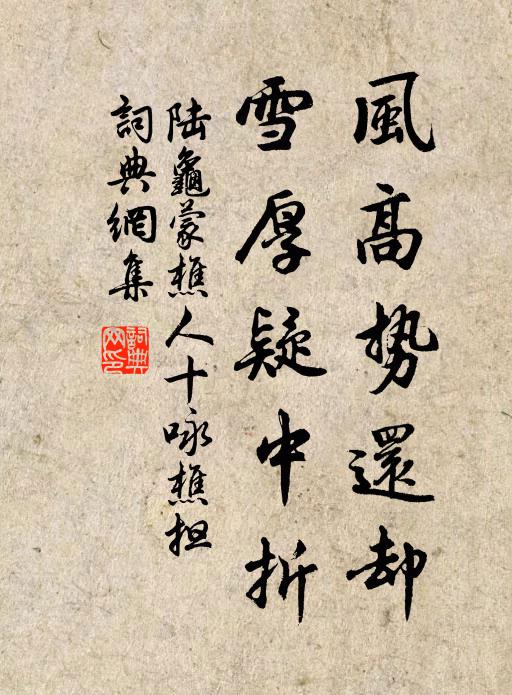 風高勢還却
雪厚疑中折
陆龜蒙樵人十咏樵担
詞典網集
詞典网印